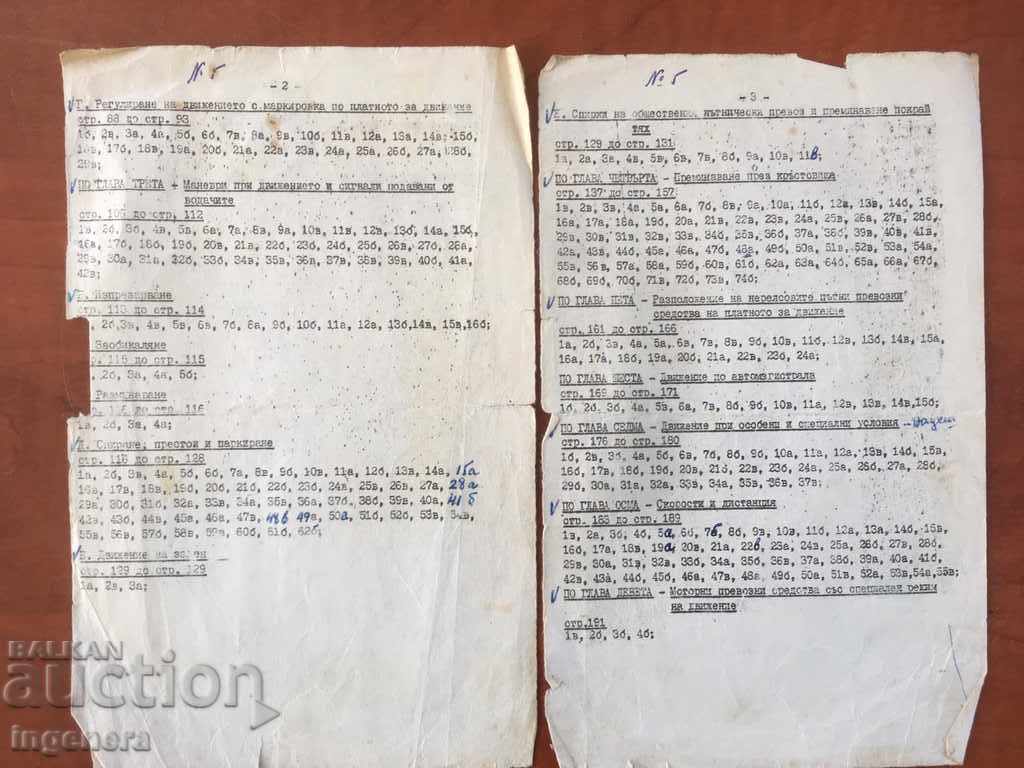 № 5
- 2 -
Г. Регулиране на движението с маркировка по платното за движение
стр. 88 до стр. 93
1б, 2в, 3а, 4а, 5б, 6б, 7в, 8а, 9в, 10б, 11в, 12а, 13а, 14в, 15б,
16в, 17б, 18в, 19а, 20б, 21а, 22в, 23в, 24а, 25а, 26в, 27а, 28б,
29в;
ПО ГЛАВА ТРЕТА - Маневри при движението и сигнали подавани от
водачите
стр. 105 до стр. 112
1в, 2б, 3б, 4в, 5в, 6а, 7а, 8в, 9а, 10в, 11в, 12в, 13б, 14а, 15б,
16а, 17б, 18б, 19б, 20в, 21в, 22б, 23б, 24б, 25б, 26в, 27б, 28а,
29в, 30а, 31а, 32б, 33б, 34в, 35в, 36в, 37в, 38в, 39в, 40б, 41а,
42в;
Изпреварване
стр. 113 до стр. 114
2б,3в, 4в, 5в, 6в, 7б, 8а, 9б, 10б, 11а, 12а, 13б,14в, 15в,16б;
Заобикаляне
стр. 115 до стр. 115
2б, 3а, 4а, 5б;
Разминаване
стр. 116 до стр. 116
1в, 2б, 3а, 4а;
Д. Спиране, престои и паркиране
стр. 118 до стр. 128
1а, 2б, 3в, 4а, 5б, 6б, 7а, 8в, 9б, 10в, 11а, 12б, 13в, 14а, 15а
16а, 17в, 18в, 19б, 20б, 21б, 22б, 23б, 24а, 25в, 26в, 27а, 28а
29а, 30б, 31б, 32а, 33в, 34а, 35в, 36а, 37б, 38б, 39в, 40а, 41б
42в, 43б, 44в, 45а, 46а, 47в, 48б, 49а, 50а, 51б, 52б, 53в, 54в,
55в, 56в, 57б, 58в, 59в, 60б, 61б, 62б;
Е. Движение на заден
стр. 129 до стр. 129
1а, 2в, 3а;
№ 5
- 3 -
Е. Спирки на обществения пътнически превоз и преминаване покрай
тях
стр. 129 до стр. 131
1а, 2а, 3а, 4в, 5в, 6в, 7в, 8б, 9а, 10в, 11в;
ПО ГЛАВА ЧЕТВЪРТА - Преминаване през кръстовища
стр. 137 до стр. 157
1в, 2в, 3в, 4а, 5а, 6а, 7б, 8в, 9а, 10а, 11б, 12и, 13в, 14б, 15а,
16а, 17а, 18а, 19б, 20а, 21в, 22в, 23в, 24а, 25в, 26а, 27в, 28б,
29в, 30в, 31в, 32в, 33в, 34б, 35в, 36б, 37а, 38б, 39в, 40в, 41в,
42а, 43в, 44б, 45а, 46а, 47б, 48а, 49б, 50а, 51в, 52в, 53а, 54а,
55в, 56в, 57а, 58а, 59б, 60в, 61б, 62а, 63а, 64а, 65в, 66а, 67б,
68б, 69б, 70б, 71в, 72в, 73в, 74б;
ПО ГЛАВА ПЕТА - Разположение на нерелсовите пътни превозни
средства на платното за движение
стр. 161 до стр. 166
1а, 2б, 3в, 4а, 5а, 6в, 7в, 8в, 9б, 10в, 11б, 12в, 13б, 14в, 15а,
16а, 17а, 18б, 19а, 20б, 21а, 22в, 23б, 24а;
ПО ГЛАВА ШЕСТА - Движение по автомагистрала
стр. 169 до стр. 171
1б, 2б, 3б, 4а, 5в, 6а, 7в, 8б, 9б, 10в, 11а, 12в, 13в, 14в,15б;
ПО ГЛАВА СЕДМА - Движение при особени и специални условия
стр. 176 до стр. 180
1б, 2в, 3в, 4б, 5а, 6в, 7б, 8б, 9б, 10а, 11а, 12а, 13а, 14б, 15в,
16б, 17в, 18б, 19в, 20б, 21б, 22в, 23б, 24а, 25а, 26б, 27а, 28б,
29а, 30а, 31а, 32в, 33в, 34а, 35в, 36в, 37в;
ПО ГЛАВА ОСМА - Скорости и дистанция
стр. 183 до стр. 189
1в, 2а, 3б, 4б, 5а, 6б, 7б, 8б, 9в, 10в, 11б, 12а, 13а, 14б, 15в,
16б, 17а, 18в, 19а, 20в, 21а, 22в, 23а, 24в, 25а, 26б, 27в, 28б,
29в, 30а, 31в, 32в, 33б, 34б, 35в, 36в, 37а, 38б, 39а, 40а, 41б,
42в, 43а, 44б, 45б, 46а, 47в, 48а, 49б, 50а, 51в, 52а, 53в,54а,55в;
ПО ГЛАВА ДЕВЕТА - Моторни превозни средства със специален режим
на движение
стр.191
1в, 2б, 3б, 4б;
BALKAN
auction
ingenera